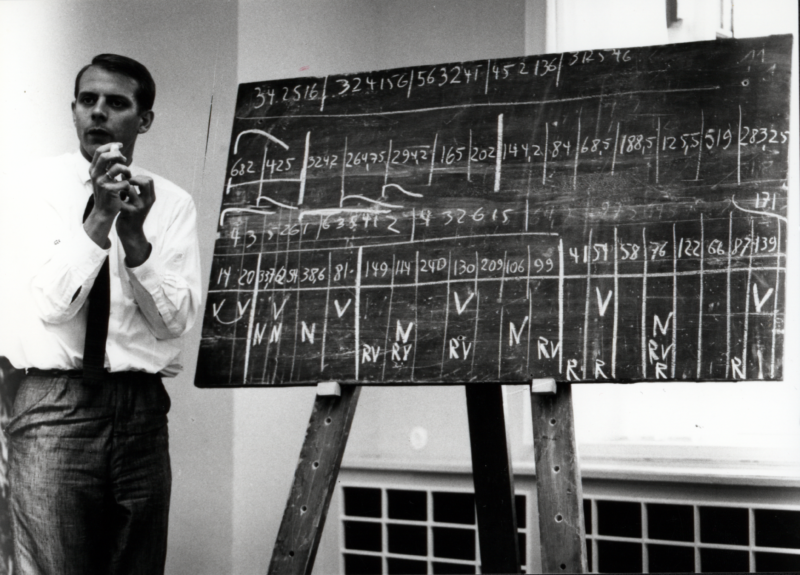 342516 | 324156 | 563241 | 452136 | 312546
11
632 | 425 | 324,2 | 264,75 | 294,2 | 165 | 202 | 144,2 | 84 | 68,5 | 188,5 | 125,5 | 519 | 283,25
171
4 3 5 2 6 1 | 6 3 5 4 1 2 | 4 3 2 6 1 5
14 | 20 | 337,6 | 254 | 386 | 81 | 149 | 114 | 240 | 130 | 209 | 106 | 99 | 41 | 51 | 58 | 76 | 122 | 66 | 87 | 139
V V V V V V V
N N N N N N
RV RV RV RV R R RV R R